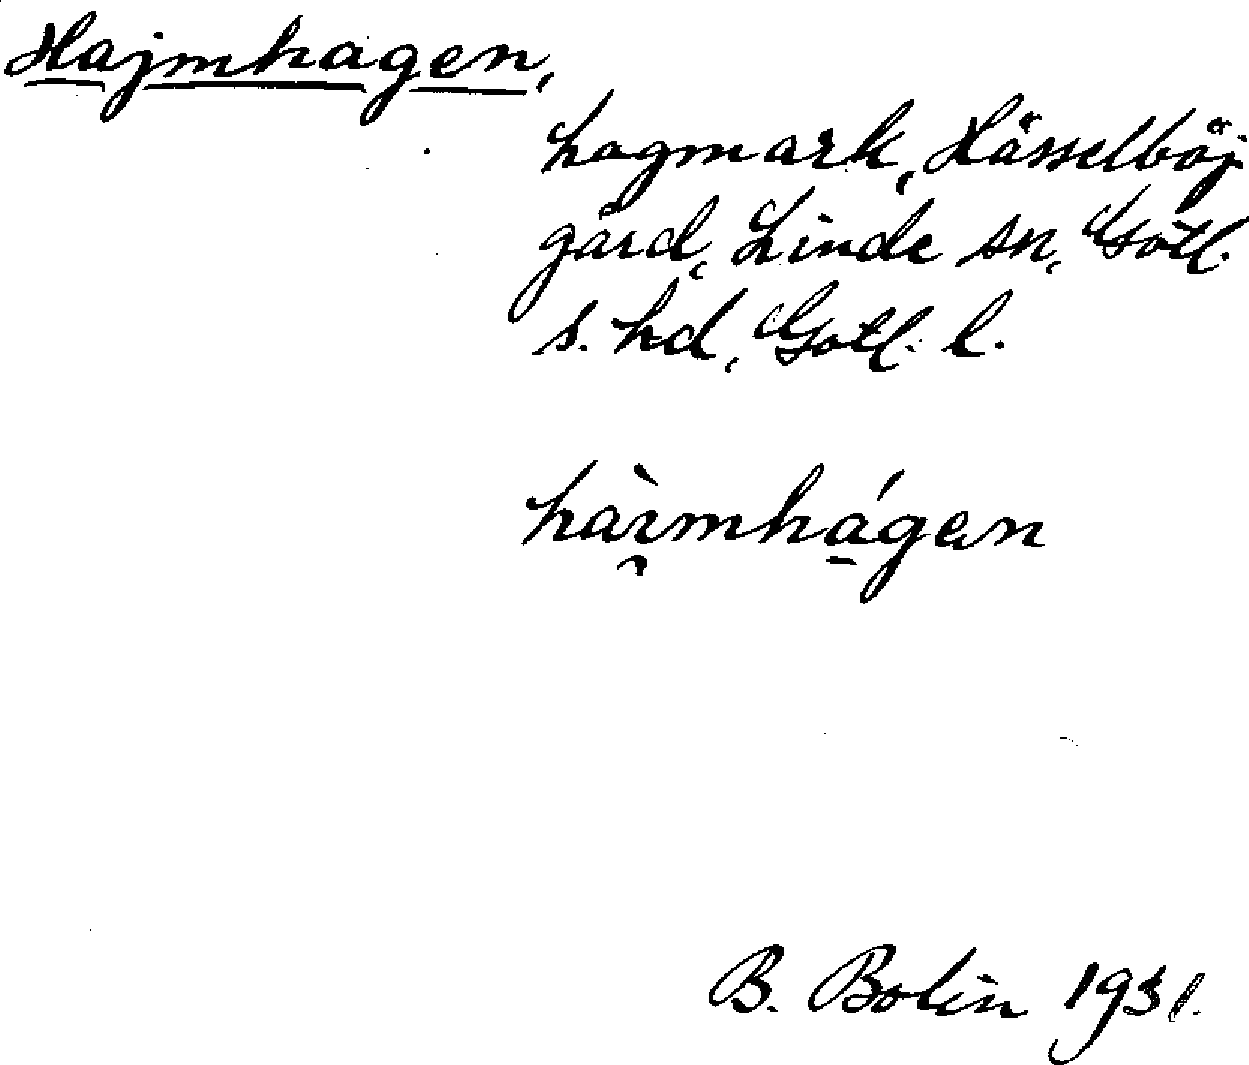 Hajmhagen,
hagmark, Hässelböj
gård, Linde sn, Gotl.
s. hd, Gotl. l.
B. Bolin 1931.